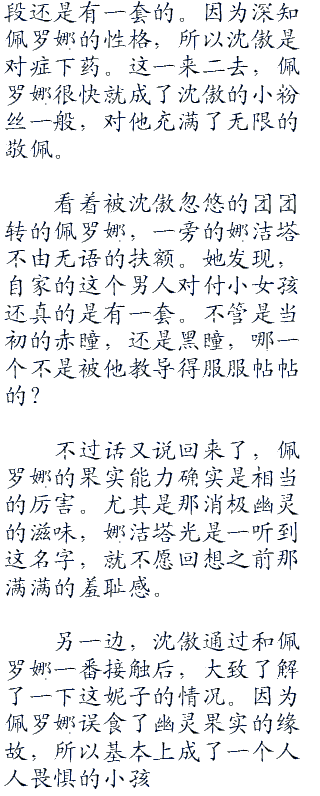 段还是有一套的。因为深知
佩罗娜的性格，所以沈傲是
对症下药。这一来二去，佩
罗娜很快就成了沈傲的小粉
丝一般，对他充满了无限的
敬佩。
看着被沈傲忽悠的团团
转的佩罗娜，一旁的娜洁塔
不由无语的扶额。她发现，
自家的这个男人对付小女孩
还真的是有一套。不管是当
初的赤瞳，还是黑瞳，哪一
个不是被他教导得服服帖帖
的？
不过话又说回来了，佩
罗娜的果实能力确实是相当
的厉害。尤其是那消极幽灵
的滋味，娜洁塔光是一听到
这名字，就不愿回想之前那
满满的羞耻感。
另一边，沈傲通过和佩
罗娜一番接触后，大致了解
了一下这妮子的情况。因为
佩罗娜误食了幽灵果实的缘
故，所以基本上成了一个人
人畏惧的小孩